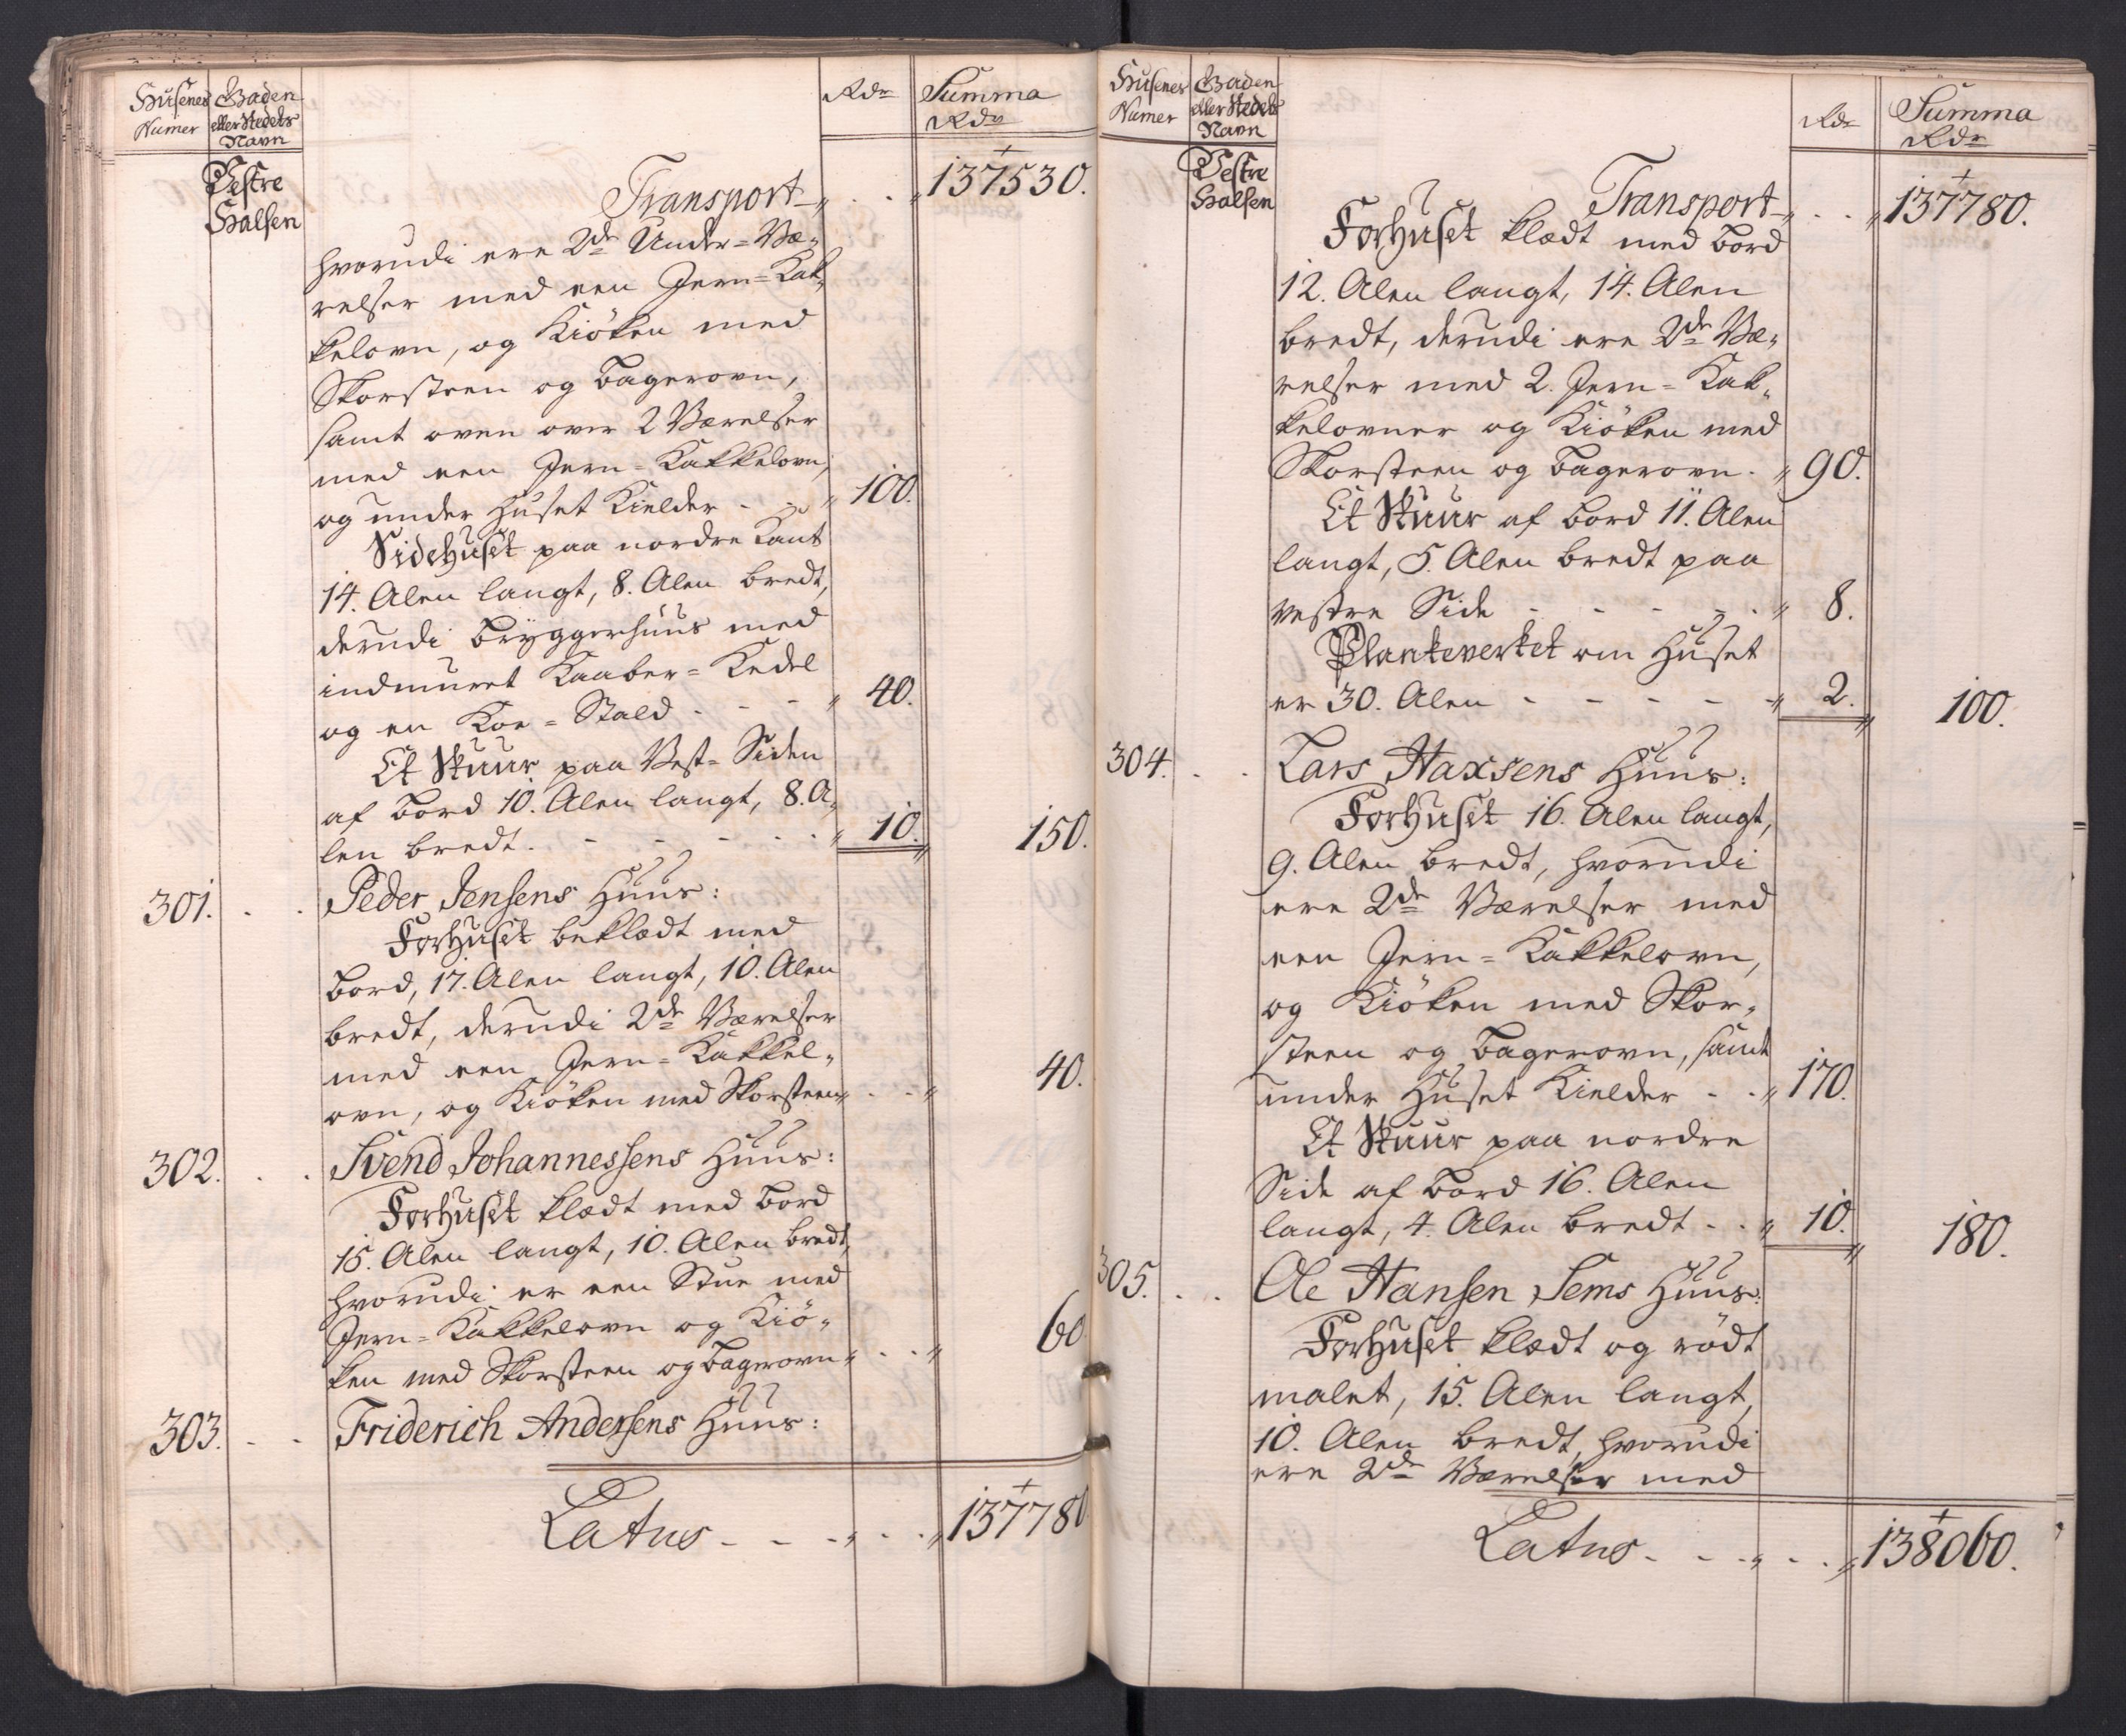 Husenes Numer
Gaden eller Stedets Navn
Rdr
Summa Rdr
Vestre Halsen
Transport 137530.
hvorudi ere 2de Under=Væ-
relser med een Jern=Kak-
kelovn, og Kiöken med
Skorsteen og Bagerovn,
samt oven over 2 Værelser
med een Jern=Kakkelovn,
og under Huset Kielder - - 100.
Sidehuset paa nordre Kant
14. Alen langt, 8. Alen bredt,
derudi Bryggerhuus med
indmuret Kaaber=Kedel
og en Koe=Stald - - - 40.
Et Skuur paa Vest=Siden
af Bord 10. Alen langt, 8. A-
len bredt. - - - - - 10. 150.
301. - - Peder Jensens Huus:
Forhuset beklædt med
Bord, 17. Alen langt, 10. Alen
bredt, derudi 2de Værelser
med een Jern=Kakkel-
ovn, og Kiöken med Skorsteen - - 40.
302. - - Svend Johannessens Huus:
Forhuset klædt med Bord
15. Alen langt, 10. Alen bredt,
hvorudi er een Stue med
Jern=Kakkelovn og Kiö-
ken med Skorsteen og Bagerovn - - 60
303. - - Friderich Andersens Huus:
Latus - - - - - 137780
Husenes Numer
Gaden eller Stedets Navn
Rdr
Summa Rdr
Vestre Halsen
Transport - - 137780.
Forhuset klædt med Bord
12. Alen langt, 14. Alen
bredt, derudi ere 2de Væ-
relser med 2. Jern=Kak-
kelovner og Kiöken med
Skorsteen og Bagerovn - 90.
Et Skuur af Bord 11. Alen
langt, 5. Alen bredt paa
vestre Side - - - - - 8.
Plankeverket om Huset
er 30. Alen - - - - - 2. 100.
304. - - Lars Haxsens Huus:
Forhuset 16. Alen langt,
9. Alen bredt, hvorudi
ere 2de Værelser med
een Jern=Kakkelovn,
og Kiöken med Skor-
steen og Bagerovn, samt
under Huset Kielder - - 170.
Et Skuur paa nordre
Side af Bord 16. Alen
langt, 4. Alen bredt - - 10. 180.
305. - - Ole Hansen Sems Huus:
Forhuset klædt og rödt
malet, 15. Alen langt,
10. Alen bredt, hvorudi
ere 2de Værelser med
Latus - - - - - 138060.